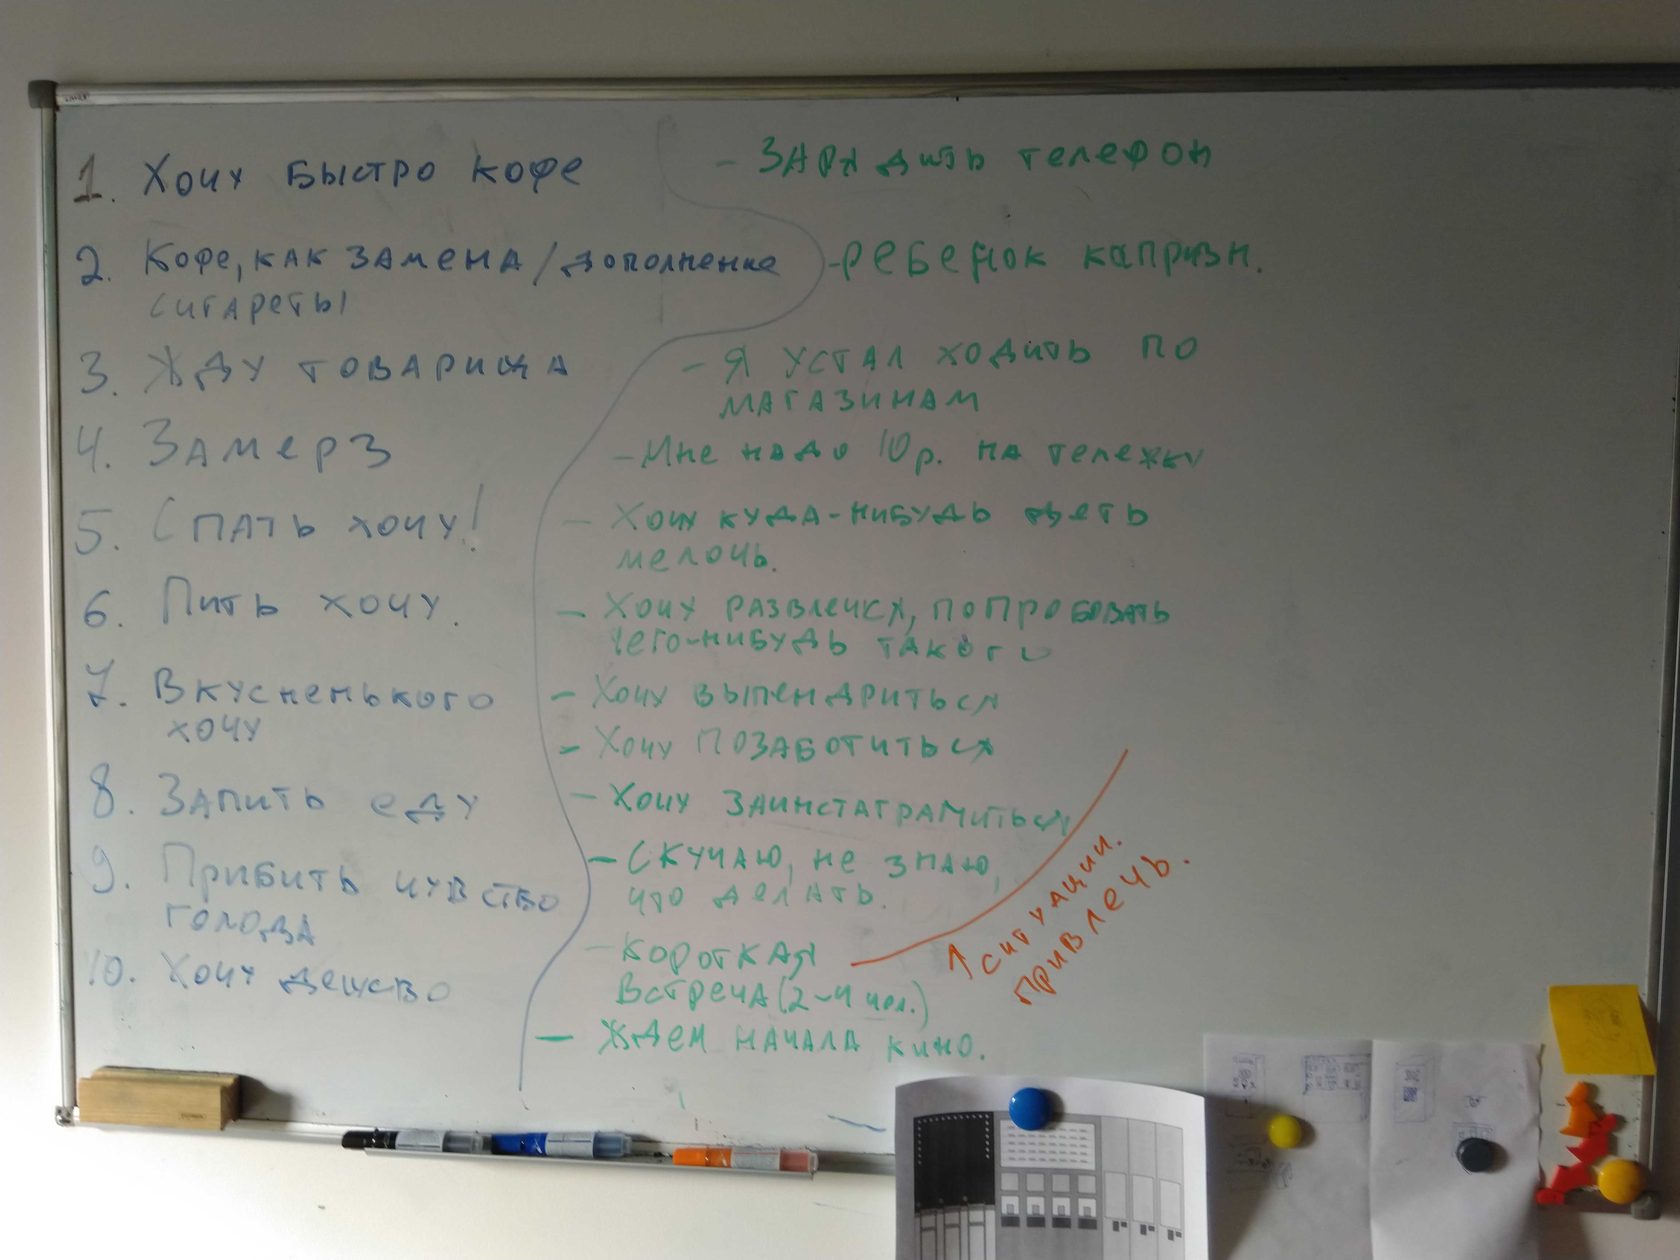 1. Хочу быстро кофе
2. Кофе, как замена/дополнение
сигареты
3. Жду товарища
4. Замерз
5. Спать хочу!
6. Пить хочу.
7. Вкусненького
хочу
8. Запить еду
9. Прибить чувство
голода
10. Хочу
- Зарядить телефон
- ребенок капризн.
- Я устал ходить по
магазинам
- Мне надо 10р. на тележку
- Хочу куда-нибудь деть
мелочь.
- Хочу развлечься, попробовать
чего-нибудь такого
- Хочу выпендриться
- Хочу позаботиться
- Хочу заинстаграмиться
- Скучаю, не знаю,
что делать.
- короткая
встреча (2-4 чел.)
- Ждем начала кино.
↑ ситуации.
привлечь.